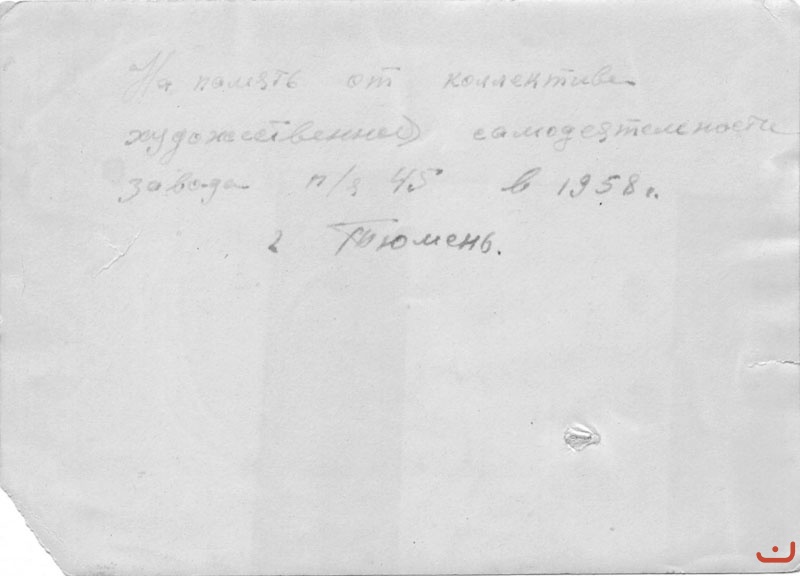 На память от коллектива
художественной самодеятельности
завода п/я 45 в 1958 г.
г Тюмень.